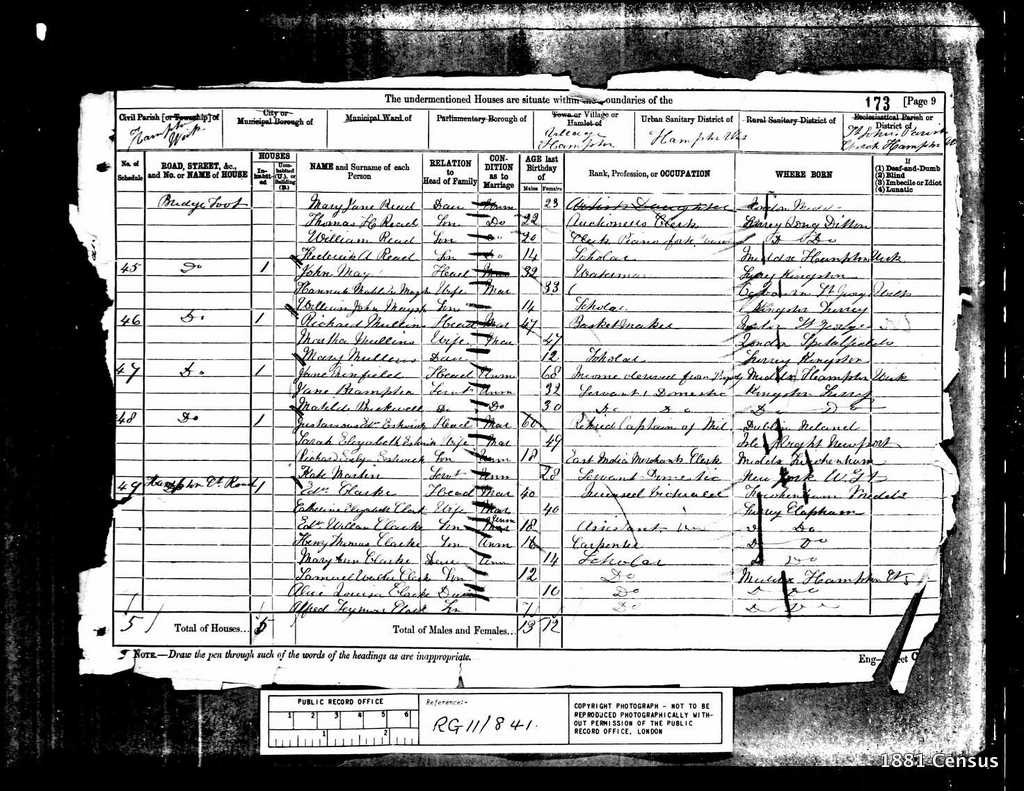 The undermentioned Houses are situate within the Boundaries of the
173 [Page 9
Civil Parish [or Township] of
City or Municipal Borough of
Municipal Ward of
Parliamentary Borough of
Town or Village or Hamlet of
Urban Sanitary District of
Rural Sanitary District of
Ecclesiastical Parish or District of
Hampton Wick
Village Hampton
Hampton Wick
St Johns Parish Church Hampton
No. of Schedule
ROAD, STREET, &c., and No. or NAME of HOUSE
HOUSES
Inhabited
Uninhabited (U.), or Building (B.)
NAME and Surname of each Person
RELATION to Head of Family
CONDITION as to Marriage
AGE last Birthday of
Males Females
Rank, Profession, or OCCUPATION
WHERE BORN
If
(1) Deaf-and-Dumb
(2) Blind
(3) Imbecile or Idiot
(4) Lunatic
Bridge Foot Mary Jane Read Daur Unm 23 Artists Daughter Middx
Thomas H Read Son Do 22 Auctioneers Clerk Surrey Long Ditton
William Read Son 20 Clerk Piano forte Do Do
Frederick A Read Son Do 14 Scholar Middsx Hampton Wick
45 Do 1 John May Head Mar 32 Surrey Kingston
Hannah May Wife Mar 33
William John May Son 14 Scholar Kingston Surrey
46 Do 1 Richard Mullins Head Mar 47 Basket Maker
Martha Mullins Wife Mar 47 London Spitalfields
Mary Mullins Daur 12 Scholar Surrey Kingston
47 Do 1 Jane Head Unm 68 Income derived from Middx Hampton Wick
Jane Servt Unm 32 Servant Domestic Kingston Surrey
Matilda Do Do 30 Do Do Do Do
48 Do 1 Head Mar 60 Retired Captain of Mil. Dublin Ireland
Sarah Elizabeth Wife Mar 49 Isle Wight Newport
Richard Son Unm 18 East India Merchants Clerk Middx Twickenham
Kate Martin Servt Unm 28 Servant Domestic New York
49 Hampton Ct Road 1 Edwd Clarke Head Mar 40 Licensed Victualler Twickenham Middx
Catherine Elizabeth Clark Wife Mar 40 Surrey Clapham
Edwd William Clarke Son Unm 18 Assistant Do Do
Henry Thomas Clarke Son Unm 16 Carpenter Do Do
Mary Ann Clarke Daur Unm 14 Scholar Do
Samuel Walter Clark Son 12 Do Middx Hampton Ct
Alice Louisa Clarke Daur 10 Do Do Do
Alfred Seymour Clark Son 7 Do Do Do
5 Total of Houses... 5 Total of Males and Females... 13 12
NOTE.—Draw the pen through such of the words of the headings as are inappropriate.
PUBLIC RECORD OFFICE
1 2 3 4 5 6
1 2
Reference:-
RG 11/841.
COPYRIGHT PHOTOGRAPH - NOT TO BE
REPRODUCED PHOTOGRAPHICALLY WITH-
OUT PERMISSION OF THE PUBLIC
RECORD OFFICE, LONDON
1881 Census